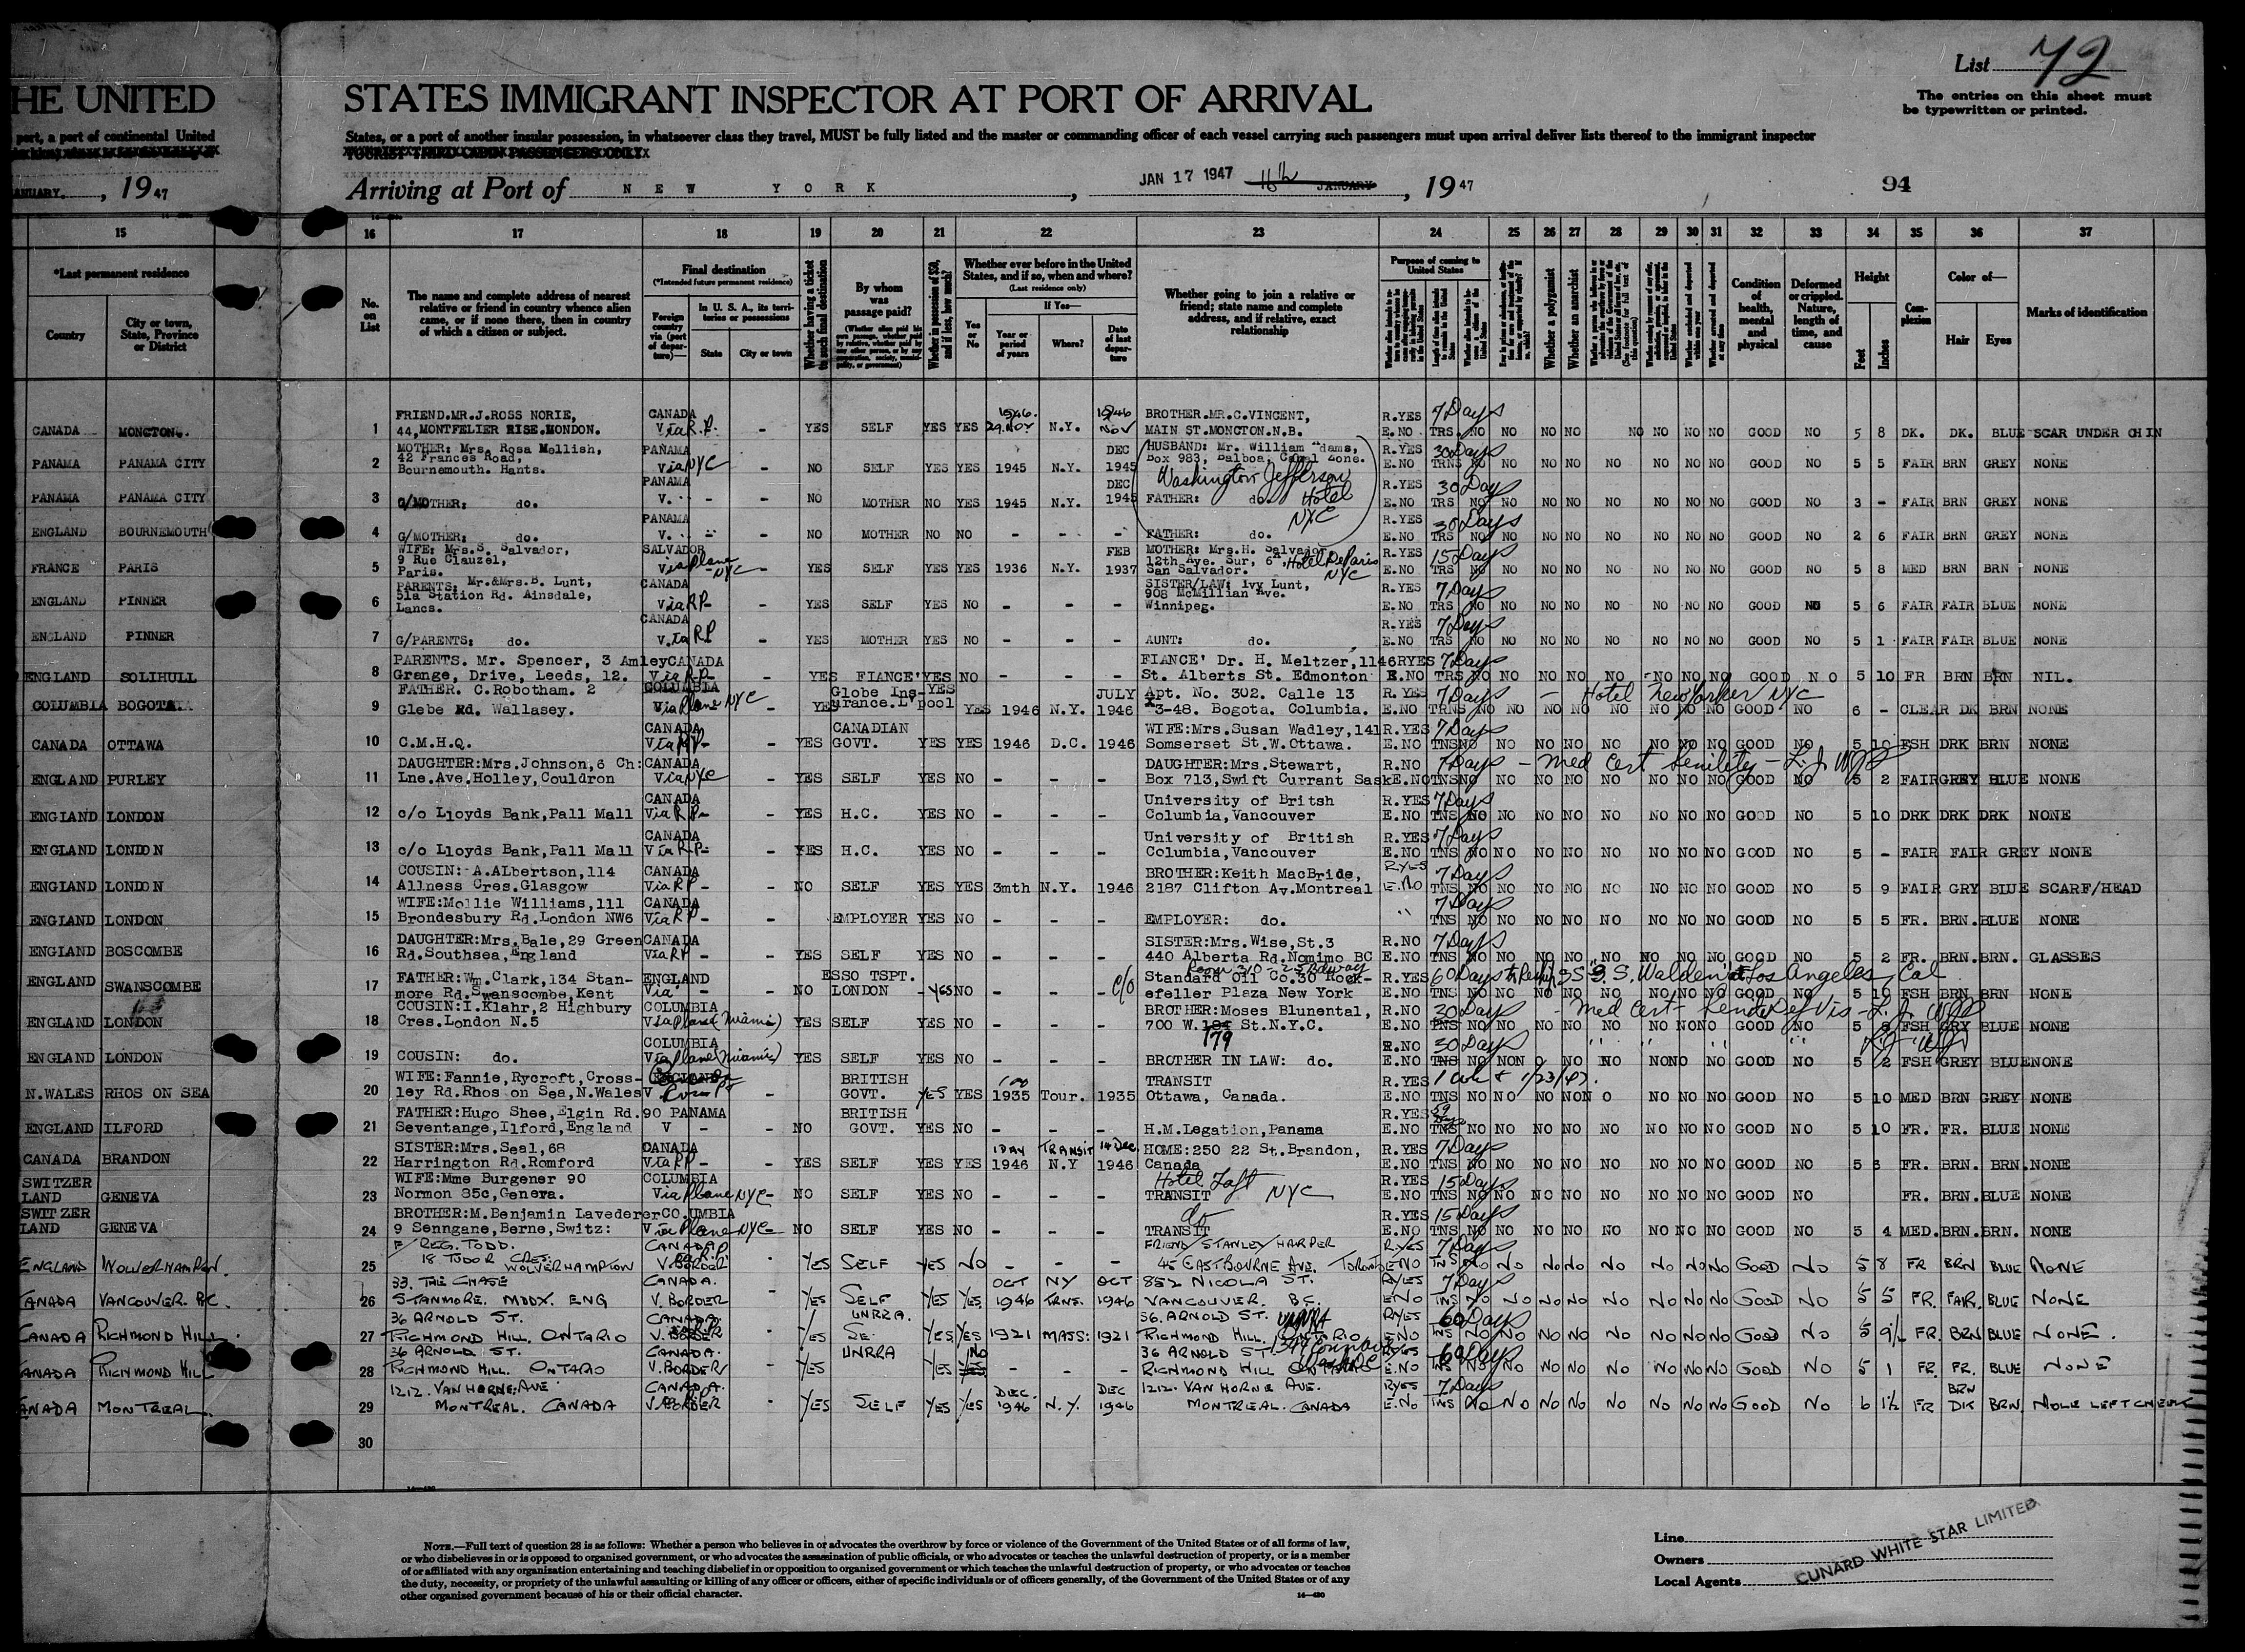 List 72
The entries on this sheet must
be typewritten or printed.
HE UNITED
STATES IMMIGRANT INSPECTOR AT PORT OF ARRIVAL
port, a port of continental United
States, or a port of another insular possession, in whatsoever class they travel, MUST be fully listed and the master or commanding officer of each vessel carrying such passengers must upon arrival deliver lists thereof to the immigrant inspector
TOURIST THIRD CABIN PASSENGERS ONLY
ANUARY. , 1947
Arriving at Port of NEW YORK , JAN 17 1947 16th JANUARY , 1947
94
15 16 17 18 19 20 21 22 23 24 25 26 27 28 29 30 31 32 33 34 35 36 37
*Last permanent residence
Country
City or town, State, Province or District
No. on List
The name and complete address of nearest relative or friend in country whence alien came, or if none there, then in country of which a citizen or subject.
Final destination
(*Intended future permanent residence)
Foreign country via (port of departure)—
In U. S. A., its territories or possessions
State
City or town
Whether having a ticket to such final destination
By whom was passage paid?
Whether in possession of $50, and if less, how much?
Whether ever before in the United States, and if so, when and where?
(Last residence only)
Yes or No
If Yes—
Year or period of years
Where?
Date of last departure
Whether going to join a relative or friend; state name and complete address, and if relative, exact relationship
Purpose of coming to United States
Whether a polygamist
Whether an anarchist
Condition of health, mental and physical
Deformed or crippled. Nature, length of time, and cause
Height
Feet
Inches
Complexion
Color of—
Hair
Eyes
Marks of identification
CANADA MONCTON. 1 FRIEND.MR.J.ROSS NORIE, 44,MONTFELIER RISE.MONDON. CANADA Via R.P. - YES SELF YES YES 1946. 29.NOV N.Y. 1946 NOV BROTHER.MR.C.VINCENT, MAIN ST.MONCTON.N.B. R.YES E.NO 7 Days TRS. NO NO NO NO NO NO NO NO GOOD NO 5 8 DK. DK. BLUE SCAR UNDER CHIN
PANAMA PANAMA CITY 2 MOTHER: Mrs. Rosa Mollish, 42 Frances Road, Bournemouth. Hants. PANAMA Via NYC - NO SELF YES YES 1945 N.Y. DEC 1945 HUSBAND: Mr. William Adams, Box 983, Balboa, Canal Zone. Washington Jefferson Hotel NYC R.YES E.NO 30 Days TRNS NO NO NO NO NO NO NO NO GOOD NO 5 5 FAIR BRN GREY NONE
PANAMA PANAMA CITY 3 G/MOTHER: do. PANAMA V. - - NO MOTHER NO YES 1945 N.Y. DEC 1945 FATHER: do. R.YES E.NO 30 Days TRS NO NO NO NO NO NO NO NO GOOD NO 3 - FAIR BRN GREY NONE
ENGLAND BOURNEMOUTH 4 G/MOTHER: do. PANAMA V. - NO MOTHER NO NO - - - FATHER: do. R.YES E.NO 30 Days TRS NO NO NO NO NO NO NO NO GOOD NO 2 6 FAIR BRN GREY NONE
FRANCE PARIS 5 WIFE: Mrs.S. Salvador, 9 Rue Clauzel, Paris. SALVADOR Via Plane NYC - YES SELF YES YES 1936 N.Y. FEB 1937 MOTHER: Mrs.H. Salvador, 12th.Ave. Sur, 6 San Salvador. Hotel De Paris NYC R.YES E.NO 15 Days TRS NO NO NO NO NO NO NO NO GOOD NO 5 8 MED BRN BRN NONE
ENGLAND PINNER 6 PARENTS: Mr.&Mrs.B. Lunt, 51a Station Rd. Ainsdale, Lancs. CANADA Via RP - YES SELF YES NO - - - SISTER/LAW: Ivy Lunt, 908 McMillian Ave. Winnipeg. R.YES E.NO 7 Days TRS NO NO NO NO NO NO NO NO GOOD NO 5 6 FAIR FAIR BLUE NONE
ENGLAND PINNER 7 G/PARENTS: do. CANADA Via RP - YES MOTHER YES NO - - - AUNT: do. R.YES E.NO 7 Days TRS NO NO NO NO NO NO NO NO GOOD NO 5 1 FAIR FAIR BLUE NONE
ENGLAND SOLIHULL 8 PARENTS. Mr. Spencer, 3 Amley Grange, Drive, Leeds, 12. CANADA Via R.P. - YES FIANCE' YES NO - - - FIANCE' Dr. H. Meltzer,1146 St. Alberts St. Edmonton RYES E.NO 7 Days TRS NO NO NO NO NO NO NO NO GOOD NO 5 10 FR BRN BRN NIL.
COLUMBIA BOGOTA. 9 FATHER. C.Robotham. 2 Glebe Rd. Wallasey. COLUMBIA Via Plane NYC - YES Globe Insurance.L'pool YES YES 1946 N.Y. JULY 1946 Apt. No. 302. Calle 13 3-48. Bogota. Columbia. R.YES E.NO 7 Days - Hotel New Yorker NYC TRNS NO NO NO NO NO NO NO NO GOOD NO 6 - CLEAR DK BRN NONE
CANADA OTTAWA 10 C.M.H.Q. CANADA Via RP - YES CANADIAN GOVT. YES YES 1946 D.C. 1946 WIFE:Mrs.Susan Wadley,141 Somserset St.W.Ottawa. R.YES E.NO 7 Days TNS NO NO NO NO NO NO NO NO GOOD NO 5 10 FSH DRK BRN NONE
ENGLAND PURLEY 11 DAUGHTER:Mrs.Johnson,6 Ch: Lne.Ave.Holley,Couldron CANADA Via NYC - YES SELF YES NO - - - DAUGHTER:Mrs.Stewart, Box 713,Swift Currant Sask R.NO E.NO 7 Days - Med Cert Senility - TNS NO NO NO NO NO NO NO GOOD NO 5 2 FAIR GREY BLUE NONE
ENGLAND LONDON 12 c/o Lloyds Bank,Pall Mall CANADA Via R.P. - YES H.C. YES NO - - - University of Britsh Columbia,Vancouver R.YES E.NO 7 Days TNS NO NO NO NO NO NO NO NO GOOD NO 5 10 DRK DRK DRK NONE
ENGLAND LONDON 13 c/o Lloyds Bank,Pall Mall CANADA Via R.P. - YES H.C. YES NO - - - University of British Columbia,Vancouver R.YES E.NO 7 Days TNS NO NO NO NO NO NO NO NO GOOD NO 5 - FAIR FAIR GREY NONE
ENGLAND LONDON 14 COUSIN:-A.ALbertson,114 Allness Cres.Glasgow CANADA Via RP - NO SELF YES YES 3mth N.Y. 1946 BROTHER:Keith MacBride, 2187 Clifton Av.Montreal R.YES E.NO 7 Days TNS NO NO NO NO NO NO NO NO GOOD NO 5 9 FAIR GRY BLUE SCARF/HEAD
ENGLAND LONDON 15 WIFE:Mollie Williams,111 Brondesbury Rd.London NW6 CANADA Via RP - EMPLOYER YES NO - - - EMPLOYER: do. " 7 Days TNS NO NO NO NO NO NO NO NO GOOD NO 5 5 FR. BRN. BLUE NONE
ENGLAND BOSCOMBE 16 DAUGHTER:Mrs.Bale,29 Green Rd.Southsea,England CANADA Via RP - YES SELF YES NO - - - SISTER:Mrs.Wise,St.3 440 Alberta Rd.Nomimo BC R.NO E.NO 7 Days TNS NO NO NO NO NO NO NO NO GOOD NO 5 2 FR. BRN. BRN. GLASSES
ENGLAND SWANSCOMBE 17 FATHER:Wm.Clark,134 Stanmore Rd.Swanscombe,Kent ENGLAND Via - NO ESSO TSPT. LONDON - YES NO - - - c/o Room 310 - 25 Bdway Standard Oil Co.30 Rockefeller Plaza New York R.YES E.NO 60 Days to Reship S.S. "S.S. Walden" at Los Angeles, Cal TNS NO NO NO NO NO NO NO NO GOOD NO 5 10 FSH BRN BRN NONE
ENGLAND LONDON 18 COUSIN:I.Klahr,2 Highbury Cres.London N.5 COLUMBIA Via Plane (Miami) YES SELF YES NO - - - BROTHER:Moses Blunental, 700 W.184 St.N.Y.C. 179 R.NO E.NO 30 Days - Med Cert - TNS NO NO NO NO NO NO NO NO GOOD NO 5 8 FSH GRY BLUE NONE
ENGLAND LONDON 19 COUSIN: do. COLUMBIA Via Plane (Miami) YES SELF YES NO - - - BROTHER IN LAW: do. R.NO E.NO 30 Days TNS NO NO NO NO NO NO NO GOOD NO 5 2 FSH GREY BLUE NONE
N.WALES RHOS ON SEA 20 WIFE:Fannie,Rycroft,Crossley Rd.Rhos on Sea,N.Wales ENGLAND V - BRITISH GOVT. YES YES 1935 Tour. 1935 TRANSIT Ottawa, Canada. R.YES E.NO 1/23/47. TNS NO NO NO NO NO NO NO NO GOOD NO 5 10 MED BRN GREY NONE
ENGLAND ILFORD 21 FATHER:Hugo Shee,Elgin Rd.90 Seventange,Ilford,England PANAMA V - NO BRITISH GOVT. YES NO - - - H.M.Legation,Panama R.YES E.NO TNS NO NO NO NO NO NO NO NO GOOD NO 5 10 FR. FR. BLUE NONE
CANADA BRANDON 22 SISTER:Mrs.Seal,68 Harrington Rd.Romford CANADA Via RP - YES SELF YES YES 1 DAY 1946 TRANSIT N.Y 14 Dec. 1946 HOME:250 22 St.Brandon, Canada R.YES E.NO 7 Days TNS NO NO NO NO NO NO NO NO GOOD NO 5 3 FR. BRN. BRN. NONE
SWITZERLAND GENEVA 23 WIFE:Mme Burgener 90 Normon 35c,Geneva. COLUMBIA Via Plane NYC - NO SELF YES NO - - - Hotel Taft NYC TRANSIT R.YES E.NO 15 Days TNS NO NO NO NO NO NO NO NO GOOD NO FR. BRN. BLUE NONE
SWITZERLAND GENEVA 24 BROTHER:M.Benjamin Lavederer 9 Senngane,Berne,Switz: COLUMBIA Via Plane NYC - NO SELF YES NO - - - do TRANSIT R.YES E.NO 15 Days TNS NO NO NO NO NO NO NO NO GOOD NO 5 4 MED. BRN. BRN. NONE
ENGLAND WOLVERHAMPTN. 25 F/ REG. TODD. 18 TUDOR CRES: WOLVERHAMPTON CANADA V. BORDER - YES SELF YES NO - - - FRIEND/ STANLEY HARPER 45 EASTBOURNE AVE. TORONTO R.YES E.NO 7 Days TNS NO NO NO NO NO NO NO NO GOOD NO 5 8 FR BRN BLUE NONE
CANADA VANCOUVER. B.C. 26 33. THE CHASE STANMORE. MDDX. ENG CANADA. V. BORDER - YES SELF YES YES OCT 1946 NY TRNS. OCT 1946 852 NICOLA ST. VANCOUVER. B.C. R.YES E.NO 7 Days TNS NO NO NO NO NO NO NO NO GOOD NO 5 5 FR. FAIR. BLUE NONE
CANADA RICHMOND HILL. 27 36 ARNOLD ST. RICHMOND HILL. ONTARIO CANADA V. BORDER - YES UNRRA. SE. YES YES 1921 MASS: 1921 36. ARNOLD ST. RICHMOND HILL. ONTARIO UNRRA R.YES E.NO 60 Days TNS NO NO NO NO NO NO NO NO GOOD NO 5 9½ FR. BRN BLUE NONE.
CANADA RICHMOND HILL 28 36 ARNOLD ST. RICHMOND HILL. ONTARIO CANADA. V. BORDER - YES UNRRA YES NO - - - 36 ARNOLD ST RICHMOND HILL ONTARIO Wash DC R.YES E.NO 60 Days TNS NO NO NO NO NO NO NO NO GOOD NO 5 1 FR. FR. BLUE NONE
CANADA MONTREAL. 29 1212. VAN HORNE: AVE. MONTREAL. CANADA CANADA. V. BORDER - YES SELF YES YES DEC. 1946 N.Y. DEC 1946 1212. VAN HORNE AVE. MONTREAL. CANADA R.YES E.NO 7 Days TNS NO NO NO NO NO NO NO NO GOOD NO 6 1½ FR BRN DK BRN MOLE LEFT CHEEK
30
NOTE.—Full text of question 28 is as follows: Whether a person who believes in or advocates the overthrow by force or violence of the Government of the United States or of all forms of law,
or who disbelieves in or is opposed to organized government, or who advocates the assassination of public officials, or who advocates or teaches the unlawful destruction of property, or is a member
of or affiliated with any organization entertaining and teaching disbelief in or opposition to organized government or which teaches the unlawful destruction of property, or who advocates or teaches
the duty, necessity, or propriety of the unlawful assaulting or killing of any officer or officers, either of specific individuals or of officers generally, of the Government of the United States or of any
other organized government because of his or their official character.
14—430
Line
Owners
Local Agents
CUNARD WHITE STAR LIMITED.